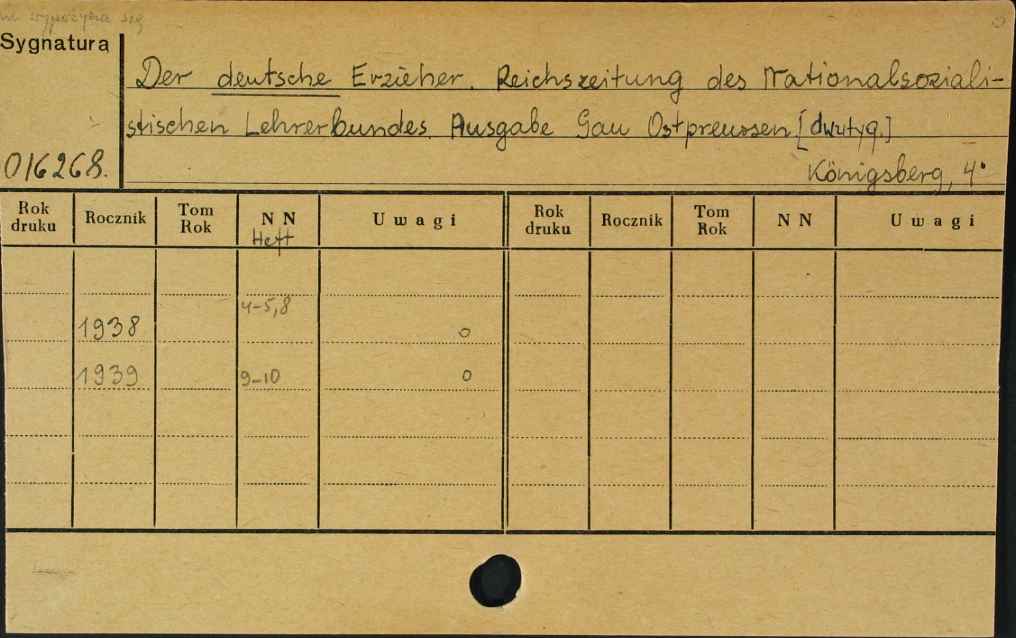 nie wypożycza się
Sygnatura
Der deutsche Erzieher. Reichszeitung des Nationalsoziali-
stischen Lehrerbundes. Ausgabe Gau Ostpreussen [dwutyg.]
016268.
Königsberg, 4°
Rok druku Rocznik Tom Rok N N Uwagi Rok druku Rocznik Tom Rok N N Uwagi
Heft
4-5,8
1938 o
1939 9-10 o